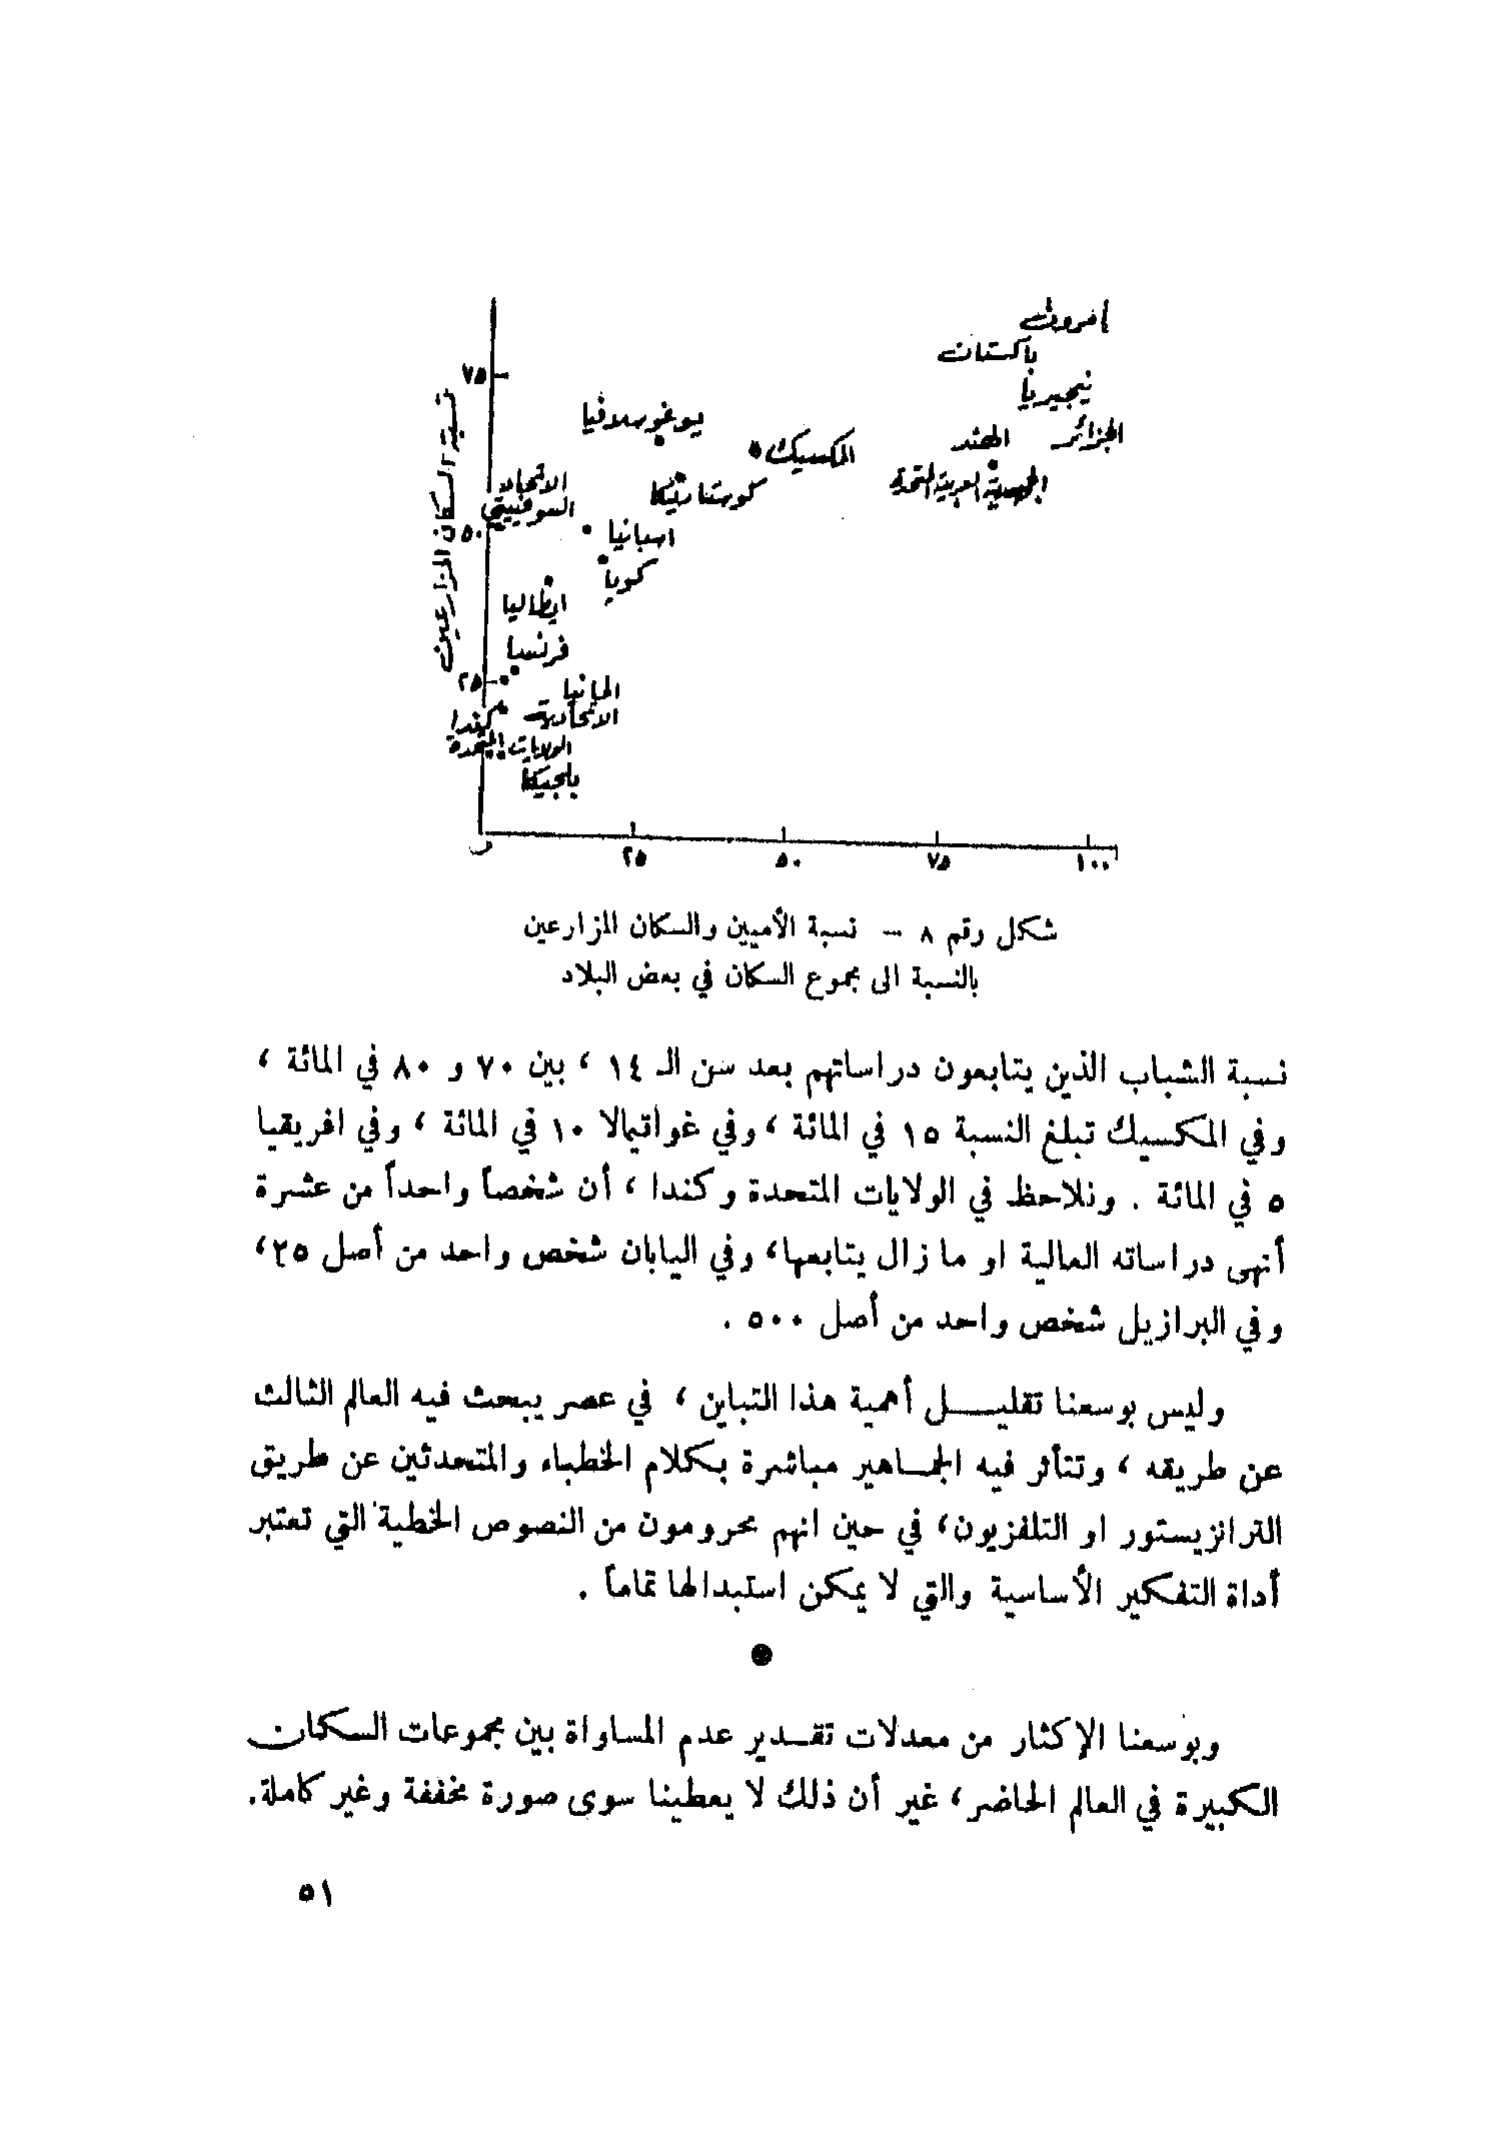 ٧٥
يوغوسلافيا
باكستان
نيجيريا
الجزائر
الهند
المكسيك
الجمهورية العربية المتحدة
كوستاريكا
الاتحاد
السوفييتي
٥٠
اسبانيا
كوبا
ايطاليا
فرنسا
٢٥
المانيا
الاتحادية
كندا
الولايات المتحدة
بلجيكا
نسبة السكان المزارعين
٢٥ ٥٠ ٧٥ ١٠٠
شكل رقم ٨ – نسبة الأميين والسكان المزارعين
بالنسبة الى مجموع السكان في بعض البلاد
نسبة الشباب الذين يتابعون دراساتهم بعد سن الـ ١٤ ، بين ٧٠ و ٨٠ في المائة ،
وفي المكسيك تبلغ النسبة ١٥ في المائة ، وفي غواتيمالا ١٠ في المائة ، وفي افريقيا
٥ في المائة . ونلاحظ في الولايات المتحدة وكندا ، أن شخصاً واحداً من عشرة
أنهى دراساته العالية او ما زال يتابعها، وفي اليابان شخص واحد من أصل ٢٥،
وفي البرازيل شخص واحد من أصل ٥٠٠ .
وليس بوسعنا تقليـــل أهمية هذا التباين ، في عصر يبحث فيه العالم الثالث
عن طريقه ، وتتأثر فيه الجمـاهير مباشرة بكلام الخطباء والمتحدثين عن طريق
الترانزيستور او التلفزيون، في حين انهم محرومون من النصوص الخطية التي تعتبر
أداة التفكير الأساسية والتي لا يمكن استبدالها تماماً .
وبوسعنا الإكثار من معدلات تقـدير عدم المساواة بين مجموعات السكان
الكبيرة في العالم الحاضر، غير أن ذلك لا يعطينا سوى صورة مخففة وغير كاملة.
٥١